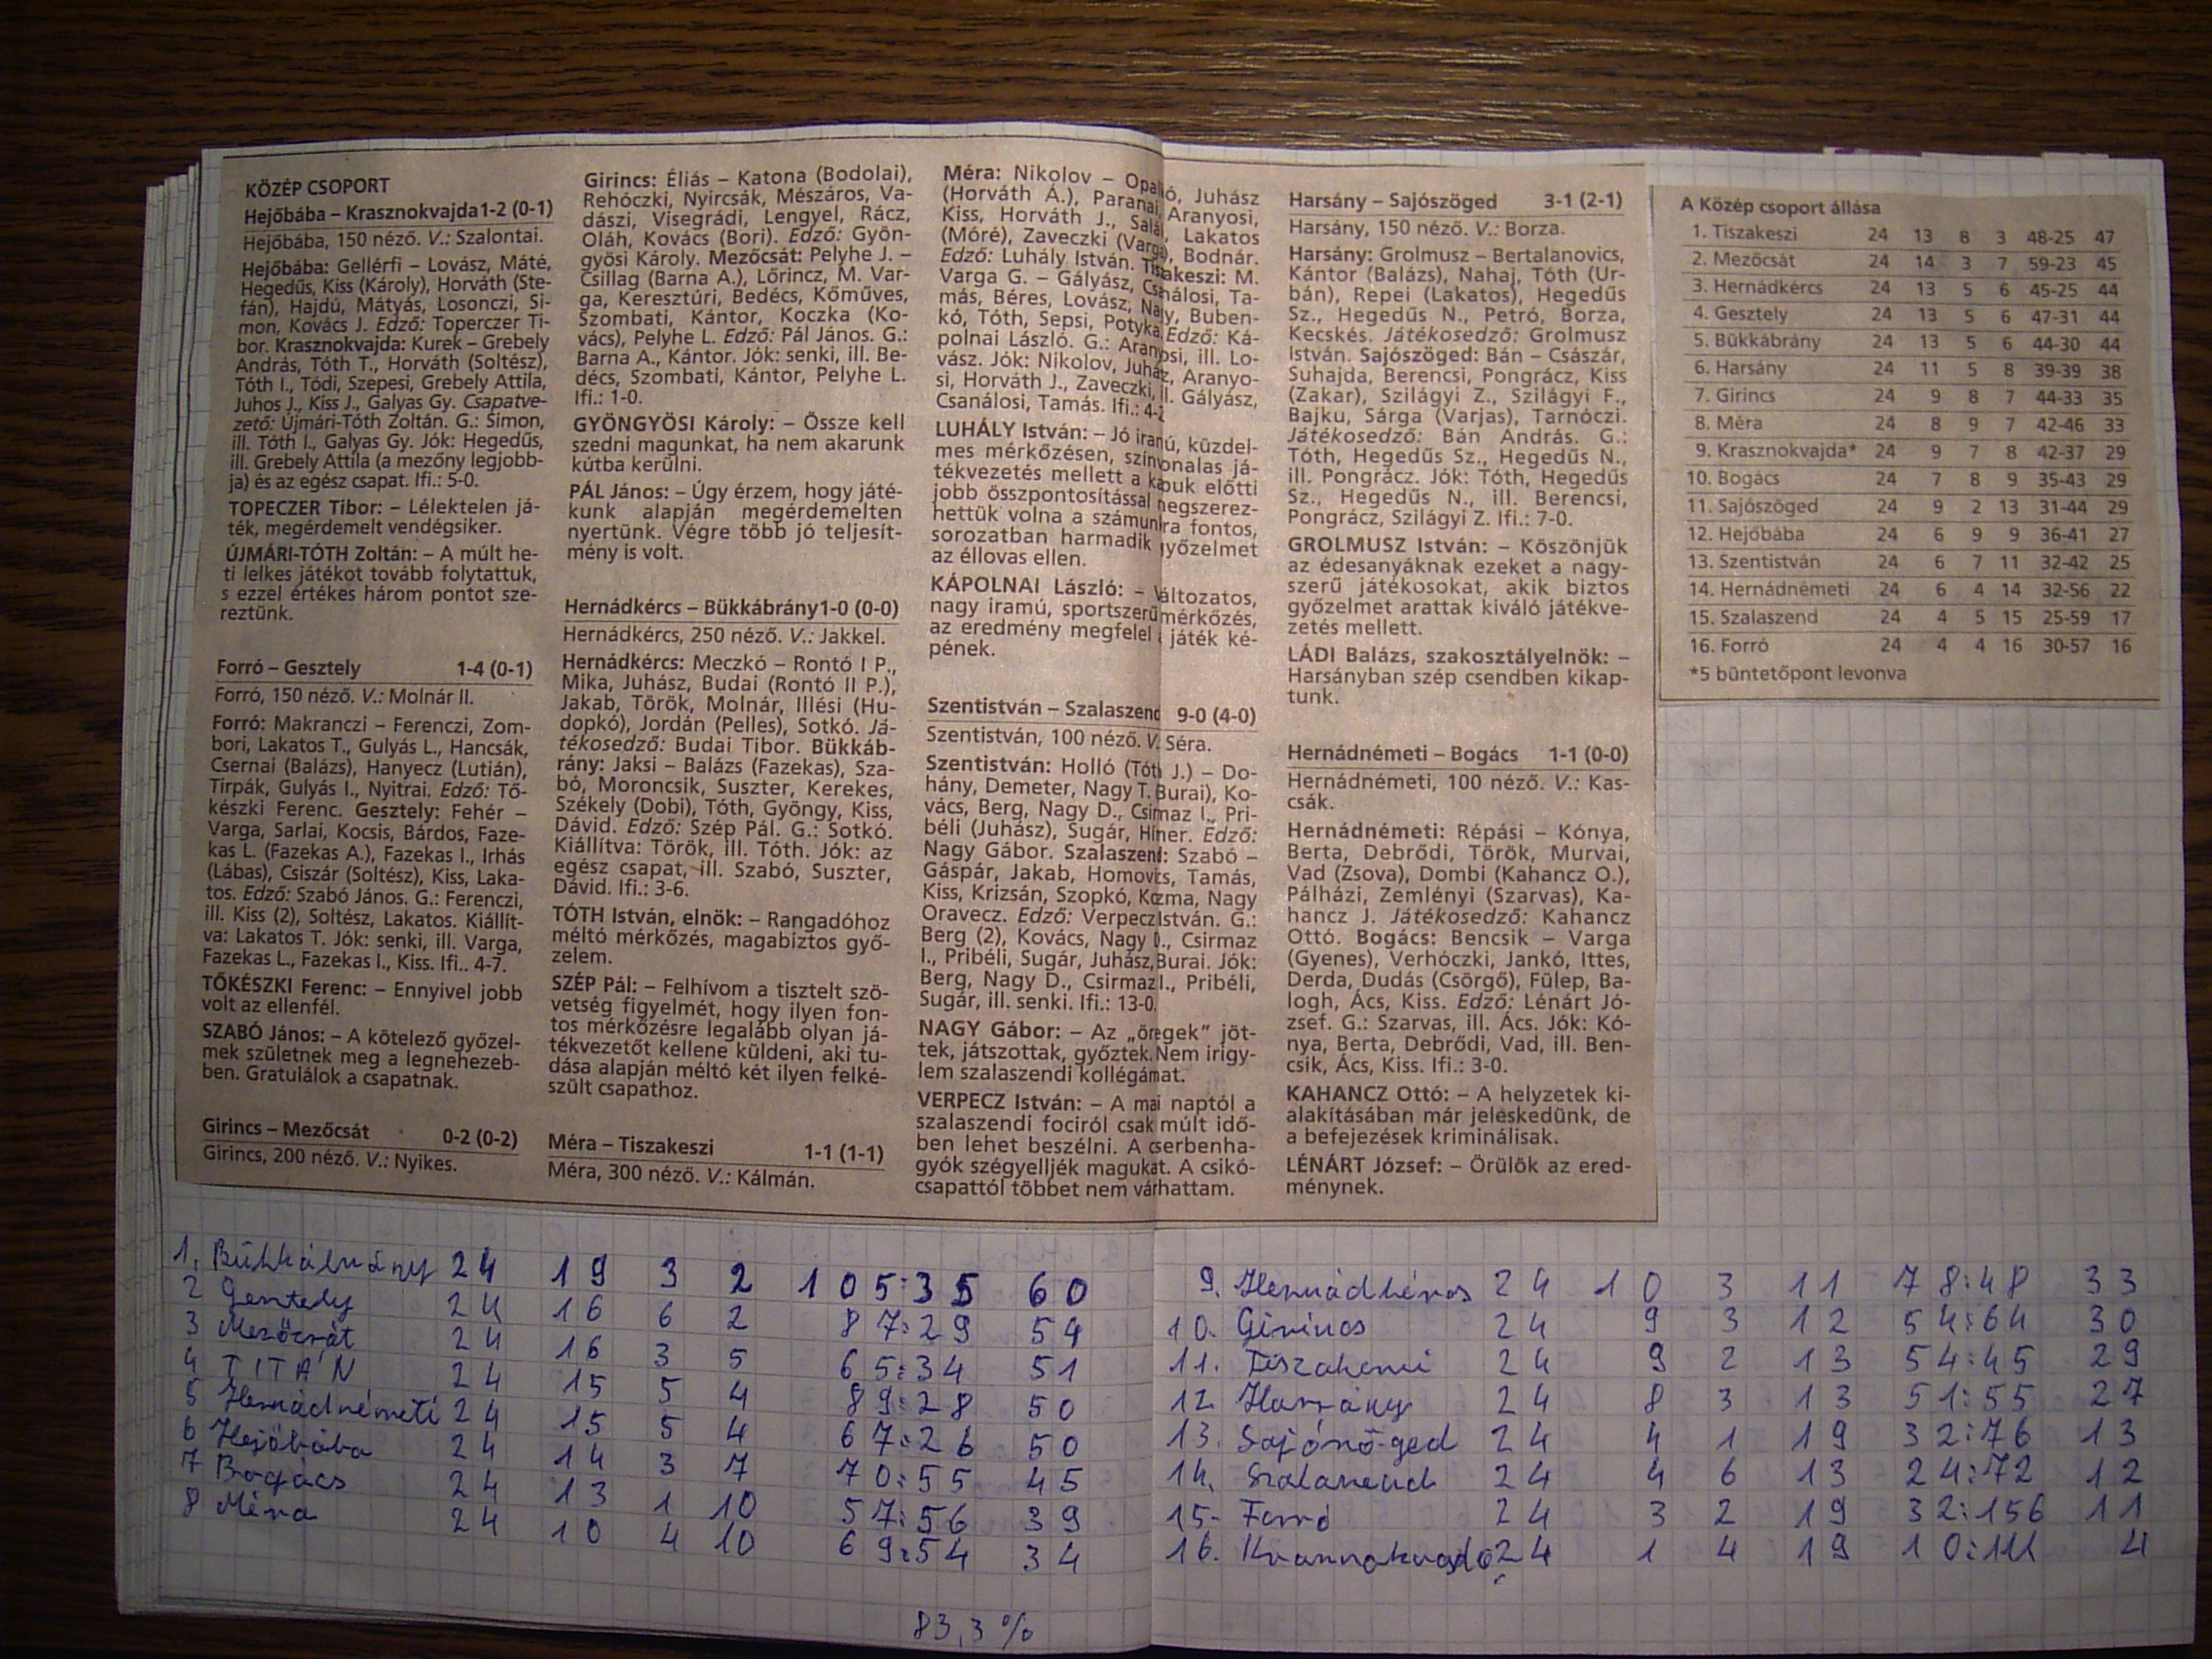 KÖZÉP CSOPORT
Hejőbába – Krasznokvajda1-2 (0-1)
Hejőbába, 150 néző. V.: Szalontai.
Hejőbába: Gellérfi – Lovász, Máté,
Hegedűs, Kiss (Károly), Horváth (Ste-
fán), Hajdú, Mátyás, Losonczi, Si-
mon, Kovács J. Edző: Toperczer Ti-
bor. Krasznokvajda: Kurek – Grebely
András, Tóth T., Horváth (Soltész),
Tóth I., Tódi, Szepesi, Grebely Attila,
Juhos J., Kiss J., Galyas Gy. Csapatve-
zető: Újmári-Tóth Zoltán. G.: Simon,
ill. Tóth I., Galyas Gy. Jók: Hegedűs,
ill. Grebely Attila (a mezőny legjobb-
ja) és az egész csapat. Ifi.: 5-0.
TOPECZER Tibor: – Lélektelen já-
ték, megérdemelt vendégsiker.
ÚJMÁRI-TÓTH Zoltán: – A múlt he-
ti lelkes játékot tovább folytattuk,
s ezzel értékes három pontot sze-
reztünk.
Forró – Gesztely 1-4 (0-1)
Forró, 150 néző. V.: Molnár II.
Forró: Makranczi – Ferenczi, Zom-
bori, Lakatos T., Gulyás L., Hancsák,
Csernai (Balázs), Hanyecz (Lutián),
Tirpák, Gulyás I., Nyitrai. Edző: Tő-
készki Ferenc. Gesztely: Fehér –
Varga, Sarlai, Kocsis, Bárdos, Faze-
kas L. (Fazekas A.), Fazekas I., Irhás
(Lábas), Csiszár (Soltész), Kiss, Laka-
tos. Edző: Szabó János. G.: Ferenczi,
ill. Kiss (2), Soltész, Lakatos. Kiállít-
va: Lakatos T. Jók: senki, ill. Varga,
Fazekas L., Fazekas I., Kiss. Ifi.. 4-7.
TŐKÉSZKI Ferenc: – Ennyivel jobb
volt az ellenfél.
SZABÓ János: – A kötelező győzel-
mek születnek meg a legnehezeb-
ben. Gratulálok a csapatnak.
Girincs – Mezőcsát 0-2 (0-2)
Girincs, 200 néző. V.: Nyikes.
Girincs: Éliás – Katona (Bodolai),
Rehóczki, Nyircsák, Mészáros, Va-
dászi, Visegrádi, Lengyel, Rácz,
Oláh, Kovács (Bori). Edző: Gyön-
gyösi Károly. Mezőcsát: Pelyhe J. –
Csillag (Barna A.), Lőrincz, M. Var-
ga, Keresztúri, Bedécs, Kőműves,
Szombati, Kántor, Koczka (Ko-
vács), Pelyhe L. Edző: Pál János. G.:
Barna A., Kántor. Jók: senki, ill. Be-
décs, Szombati, Kántor, Pelyhe L.
Ifi.: 1-0.
GYÖNGYÖSI Károly: – Össze kell
szedni magunkat, ha nem akarunk
kútba kerülni.
PÁL János: – Úgy érzem, hogy játé-
kunk alapján megérdemelten
nyertünk. Végre több jó teljesít-
mény is volt.
Hernádkércs – Bükkábrány1-0 (0-0)
Hernádkércs, 250 néző. V.: Jakkel.
Hernádkércs: Meczkó – Rontó I P.,
Mika, Juhász, Budai (Rontó II P.),
Jakab, Török, Molnár, Illési (Hu-
dopkó), Jordán (Pelles), Sotkó. Já-
tékosedző: Budai Tibor. Bükkáb-
rány: Jaksi – Balázs (Fazekas), Sza-
bó, Moroncsik, Suszter, Kerekes,
Székely (Dobi), Tóth, Gyöngy, Kiss,
Dávid. Edző: Szép Pál. G.: Sotkó.
Kiállítva: Török, ill. Tóth. Jók: az
egész csapat, ill. Szabó, Suszter,
Dávid. Ifi.: 3-6.
TÓTH István, elnök: – Rangadóhoz
méltó mérkőzés, magabiztos győ-
zelem.
SZÉP Pál: – Felhívom a tisztelt szö-
vetség figyelmét, hogy ilyen fon-
tos mérkőzésre legalább olyan já-
tékvezetőt kellene küldeni, aki tu-
dása alapján méltó két ilyen felké-
szült csapathoz.
Méra – Tiszakeszi 1-1 (1-1)
Méra, 300 néző. V.: Kálmán.
Méra: Nikolov – Juhász
(Horváth Á.), Aranyosi,
Kiss, Horváth J., Lakatos
(Móré), Zaveczki (Varga), Bodnár.
Edző: Luhály István. Tiszakeszi: M.
Varga G. – Gályász, Csanálosi, Ta-
más, Béres, Lovász, Nagy, Buben-
kó, Tóth, Sepsi, Potyka. Edző: Ká-
polnai László. G.: Aranyosi, ill. Lo-
vász. Jók: Nikolov, Juhász, Aranyo-
si, Horváth J., Zaveczki, ill. Gályász,
Csanálosi, Tamás. Ifi.:
LUHÁLY István: – Jó iramú, küzdel-
mes mérkőzésen, színvonalas já-
tékvezetés mellett a kapuk előtti
jobb összpontosítással megszerez-
hettük volna a számunkra fontos,
sorozatban harmadik győzelmet
az éllovas ellen.
KÁPOLNAI László: – Változatos,
nagy iramú, sportszerű mérkőzés,
az eredmény megfelel a játék ké-
pének.
Szentistván – Szalaszend 9-0 (4-0)
Szentistván, 100 néző. V. Séra.
Szentistván: Holló (Tóth J.) – Do-
hány, Demeter, Nagy T. (Burai), Ko-
vács, Berg, Nagy D., Csirmaz I., Pri-
béli (Juhász), Sugár, Edző:
Nagy Gábor. Szalaszend: Szabó –
Gáspár, Jakab, Homovics, Tamás,
Kiss, Krizsán, Szopkó, Kozma, Nagy
Oravecz. Edző: Verpecz István. G.:
Berg (2), Kovács, Nagy D., Csirmaz
I., Pribéli, Sugár, Juhász, Burai. Jók:
Berg, Nagy D., Csirmaz I., Pribéli,
Sugár, ill. senki. Ifi.: 13-0.
NAGY Gábor: – Az „öregek” jöt-
tek, játszottak, győztek. Nem irigy-
lem szalaszendi kollégámat.
VERPECZ István: – A mai naptól a
szalaszendi fociról csak múlt idő-
ben lehet beszélni. A cserbenha-
gyók szégyelljék magukat. A csikó-
csapattól többet nem várhattam.
Harsány – Sajószöged 3-1 (2-1)
Harsány, 150 néző. V.: Borza.
Harsány: Grolmusz – Bertalanovics,
Kántor (Balázs), Nahaj, Tóth (Ur-
bán), Repei (Lakatos), Hegedűs
Sz., Hegedűs N., Petró, Borza,
Kecskés. Játékosedző: Grolmusz
István. Sajószöged: Bán – Császár,
Suhajda, Berencsi, Pongrácz, Kiss
(Zakar), Szilágyi Z., Szilágyi F.,
Bajku, Sárga (Varjas), Tarnóczi.
Játékosedző: Bán András. G.:
Tóth, Hegedűs Sz., Hegedűs N.,
ill. Pongrácz. Jók: Tóth, Hegedűs
Sz., Hegedűs N., ill. Berencsi,
Pongrácz, Szilágyi Z. Ifi.: 7-0.
GROLMUSZ István: – Köszönjük
az édesanyáknak ezeket a nagy-
szerű játékosokat, akik biztos
győzelmet arattak kiváló játékve-
zetés mellett.
LÁDI Balázs, szakosztályelnök: –
Harsányban szép csendben kikap-
tunk.
Hernádnémeti – Bogács 1-1 (0-0)
Hernádnémeti, 100 néző. V.: Kas-
csák.
Hernádnémeti: Répási – Kónya,
Berta, Debrődi, Török, Murvai,
Vad (Zsova), Dombi (Kahancz O.),
Pálházi, Zemlényi (Szarvas), Ka-
hancz J. Játékosedző: Kahancz
Ottó. Bogács: Bencsik – Varga
(Gyenes), Verhóczki, Jankó, Ittes,
Derda, Dudás (Csörgő), Fülep, Ba-
logh, Ács, Kiss. Edző: Lénárt Jó-
zsef. G.: Szarvas, ill. Ács. Jók: Kó-
nya, Berta, Debrődi, Vad, ill. Ben-
csik, Ács, Kiss. Ifi.: 3-0.
KAHANCZ Ottó: – A helyzetek ki-
alakításában már jeleskedünk, de
a befejezések kriminálisak.
LÉNÁRT József: – Örülök az ered-
ménynek.
A Közép csoport állása
1. Tiszakeszi 24 13 8 3 48-25 47
2. Mezőcsát 24 14 3 7 59-23 45
3. Hernádkércs 24 13 5 6 45-25 44
4. Gesztely 24 13 5 6 47-31 44
5. Bükkábrány 24 13 5 6 44-30 44
6. Harsány 24 11 5 8 39-39 38
7. Girincs 24 9 8 7 44-33 35
8. Méra 24 8 9 7 42-46 33
9. Krasznokvajda* 24 9 7 8 42-37 29
10. Bogács 24 7 8 9 35-43 29
11. Sajószöged 24 9 2 13 31-44 29
12. Hejőbába 24 6 9 9 36-41 27
13. Szentistván 24 6 7 11 32-42 25
14. Hernádnémeti 24 6 4 14 32-56 22
15. Szalaszend 24 4 5 15 25-59 17
16. Forró 24 4 4 16 30-57 16
*5 büntetőpont levonva
1. Bükkábrány 24 19 3 2 105:35 60
2 Gesztely 24 16 6 2 87:29 54
3 Mezőcsát 24 16 3 5 65:34 51
4 TITÁN 24 15 5 4 89:28 50
5 Hernádnémeti 24 15 5 4 67:26 50
6 Hejőbába 24 14 3 7 70:55 45
7 Bogács 24 13 1 10 57:56 39
8 Méra 24 10 4 10 69:54 34
9. Hernádkércs 24 10 3 11 78:48 33
10. Girincs 24 9 3 12 54:64 30
11. Tiszakeszi 24 9 2 13 54:45 29
12. Harsány 24 8 3 13 51:55 27
13. Sajószöged 24 4 1 19 32:76 13
14. Szalaszend 24 4 6 13 24:72 12
15. Forró 24 3 2 19 32:156 11
16. Krasznokvajda 24 1 4 19 4
83,3 %